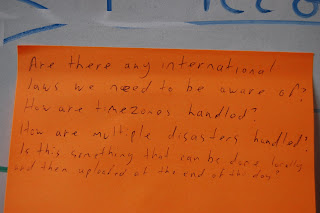 Are there any international
laws we need to be aware of?
How are timezones handled?
How are multiple disasters handled?
Is this something that can be done locally
and then uploaded at the end of the day?